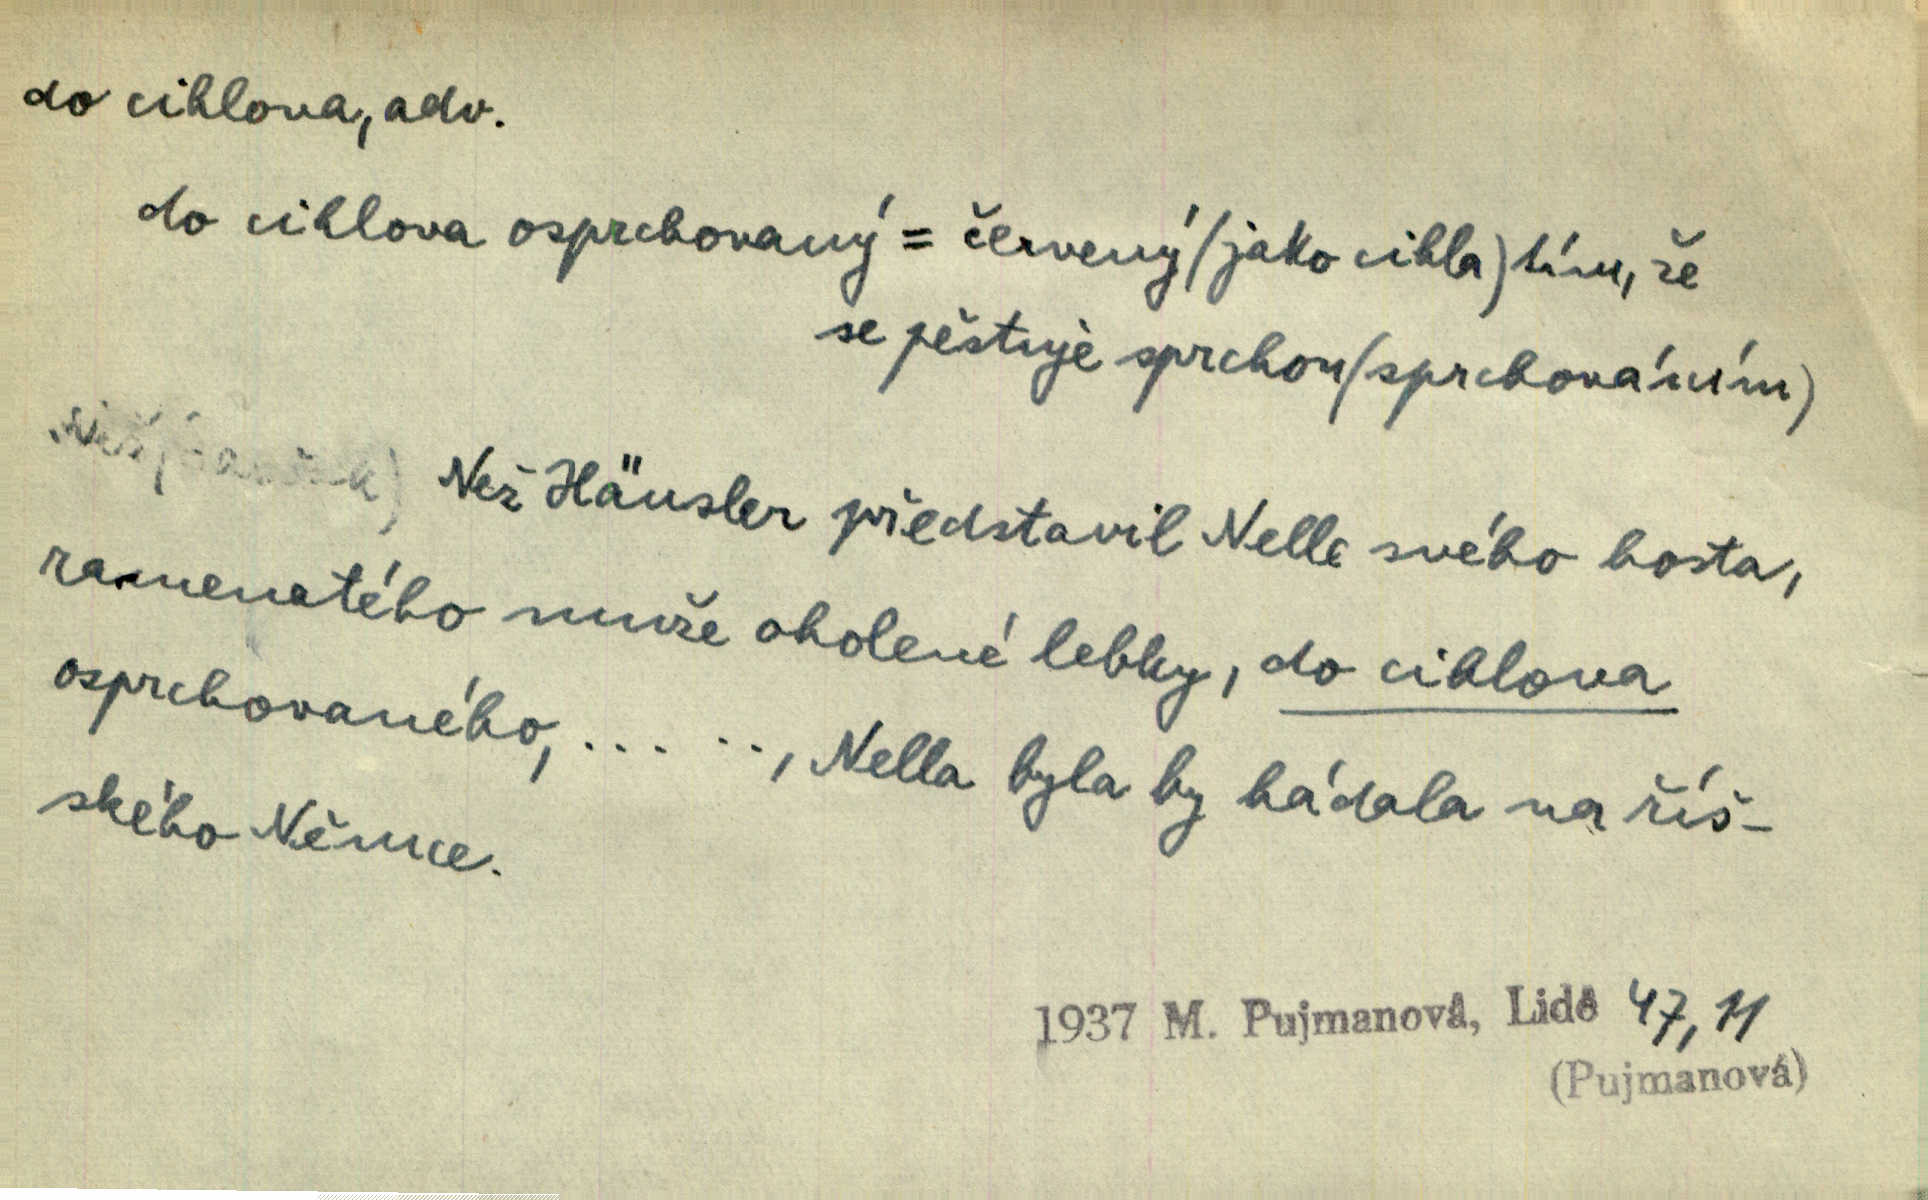 do cihlova, adv.
do cihlova osprchovaný = červený (jako cihla) tím, že
se pěstuje sprchou (sprchováním)
Než Häusler představil Nelle svého hosta,
ramenatého muže oholené lebky, do cihlova
osprchovaného, ... .., Nella byla by hádala na říš-
ského Němce.
1937 M. Pujmanová, Lidé 47, 11
(Pujmanová)